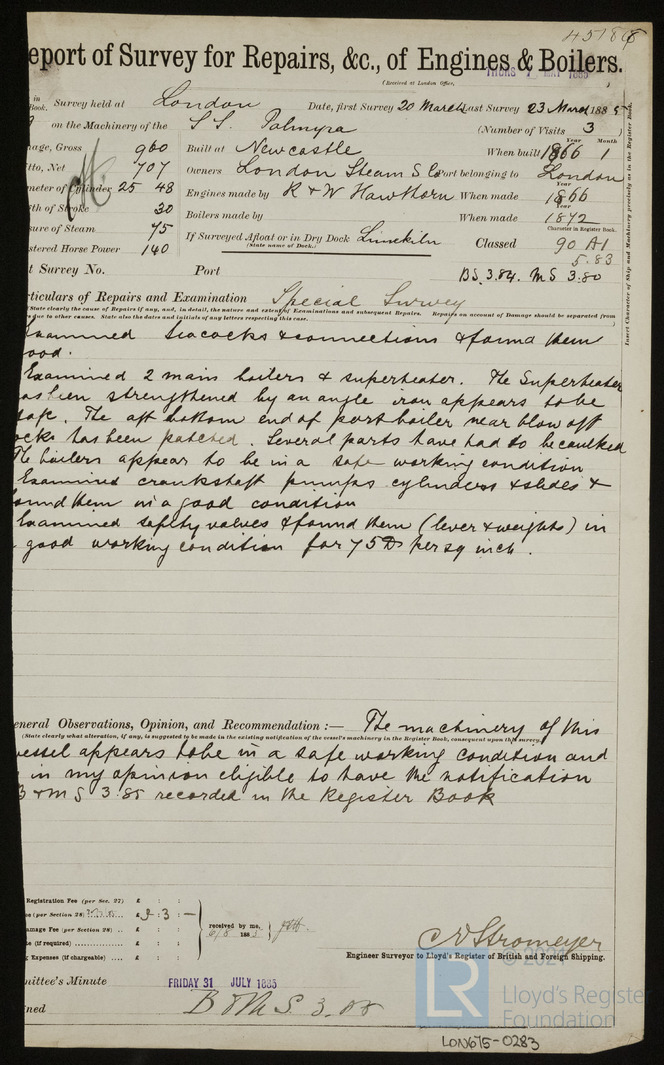 45188
eport of Survey for Repairs, &c., of Engines & Boilers.
(Received at London Office,
THURS 7 MAY 1885
in Book. Survey held at London Date, first Survey 20 March Last Survey 23 March 1885
on the Machinery of the S.S. Palmyra (Number of Visits 3)
nage, Gross 960 Built at Newcastle When built Year 1866 Month 1
tto, Net 707 Owners London Steam S. Co Port belonging to London
meter of Cylinder 25 48 Engines made by R & W Hawthorn When made Year 1866
th of Stroke 30 Boilers made by When made Year 1872
sure of Steam 75 If Surveyed Afloat or in Dry Dock Limekiln
(State name of Dock.)
Character in Register Book.
Classed 90 A1
5.83
stered Horse Power 140
t Survey No. Port BS. 3.84. MS 3.80
rticulars of Repairs and Examination Special Survey
(State clearly the cause of Repairs if any, and, in detail, the nature and extent of Examinations and subsequent Repairs. Repairs on account of Damage should be separated from
s due to other causes. State also the dates and initials of any letters respecting this case.
Insert Character of Ship and Machinery precisely as in the Register Book.
xamined Seacocks & connections & found them
ood.
Examined 2 main boilers & superheater. The Superheater
as been strengthened by an angle iron appears to be
safe. The aft bottom end of port boiler near blow off
ocks has been patched. Several parts have had to be caulked
The boilers appear to be in a safe working condition
Examined crankshaft pumps cylinders & slides &
ound them in a good condition
Examined safety valves & found them (lever & weights) in
good working condition for 75 lbs per sq inch.
eneral Observations, Opinion, and Recommendation :— The machinery of this
(State clearly what alteration, if any, is suggested to be made in the existing notification of the vessel's machinery in the Register Book, consequent upon this survey.)
vessel appears to be in a safe working condition and
in my opinion eligible to have the notification
B & MS 3.85 recorded in the Register Book
Registration Fee (per Sec. 27) £ : :
ee (per Section 28) £ 3 : 3 : —
amage Fee (per Section 28) £ : :
e (if required) £ : :
g Expenses (if chargeable) £ : :
received by me,
6/8 1885
C E Stromeyer
Engineer Surveyor to Lloyd's Register of British and Foreign Shipping.
mittee's Minute FRIDAY 31 JULY 1885
ned B & MS. 3.85
© 2021
LR
Lloyd's Register
Foundation
LON675-0283